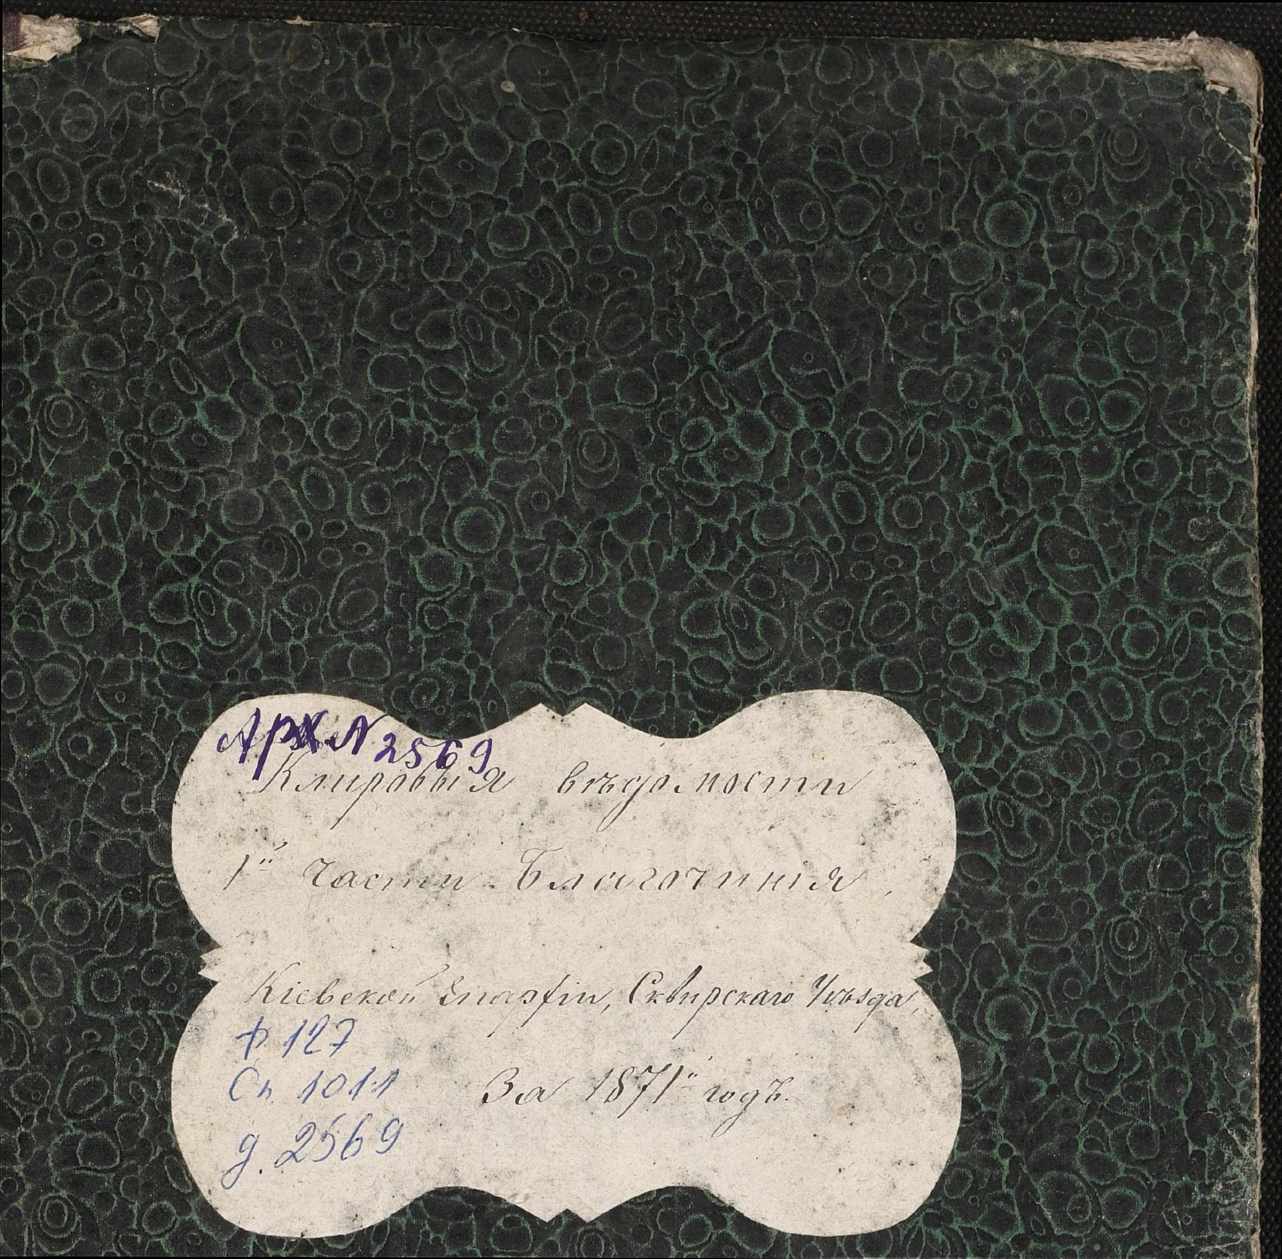 Арх N 2569
Клировыя вѣдомости
1й части Благочинія,
Кіевской Епархіи, Сквирскаго Уѣзда,
Ф 127
Оп. 1011
За 1871й годъ.
д. 2569